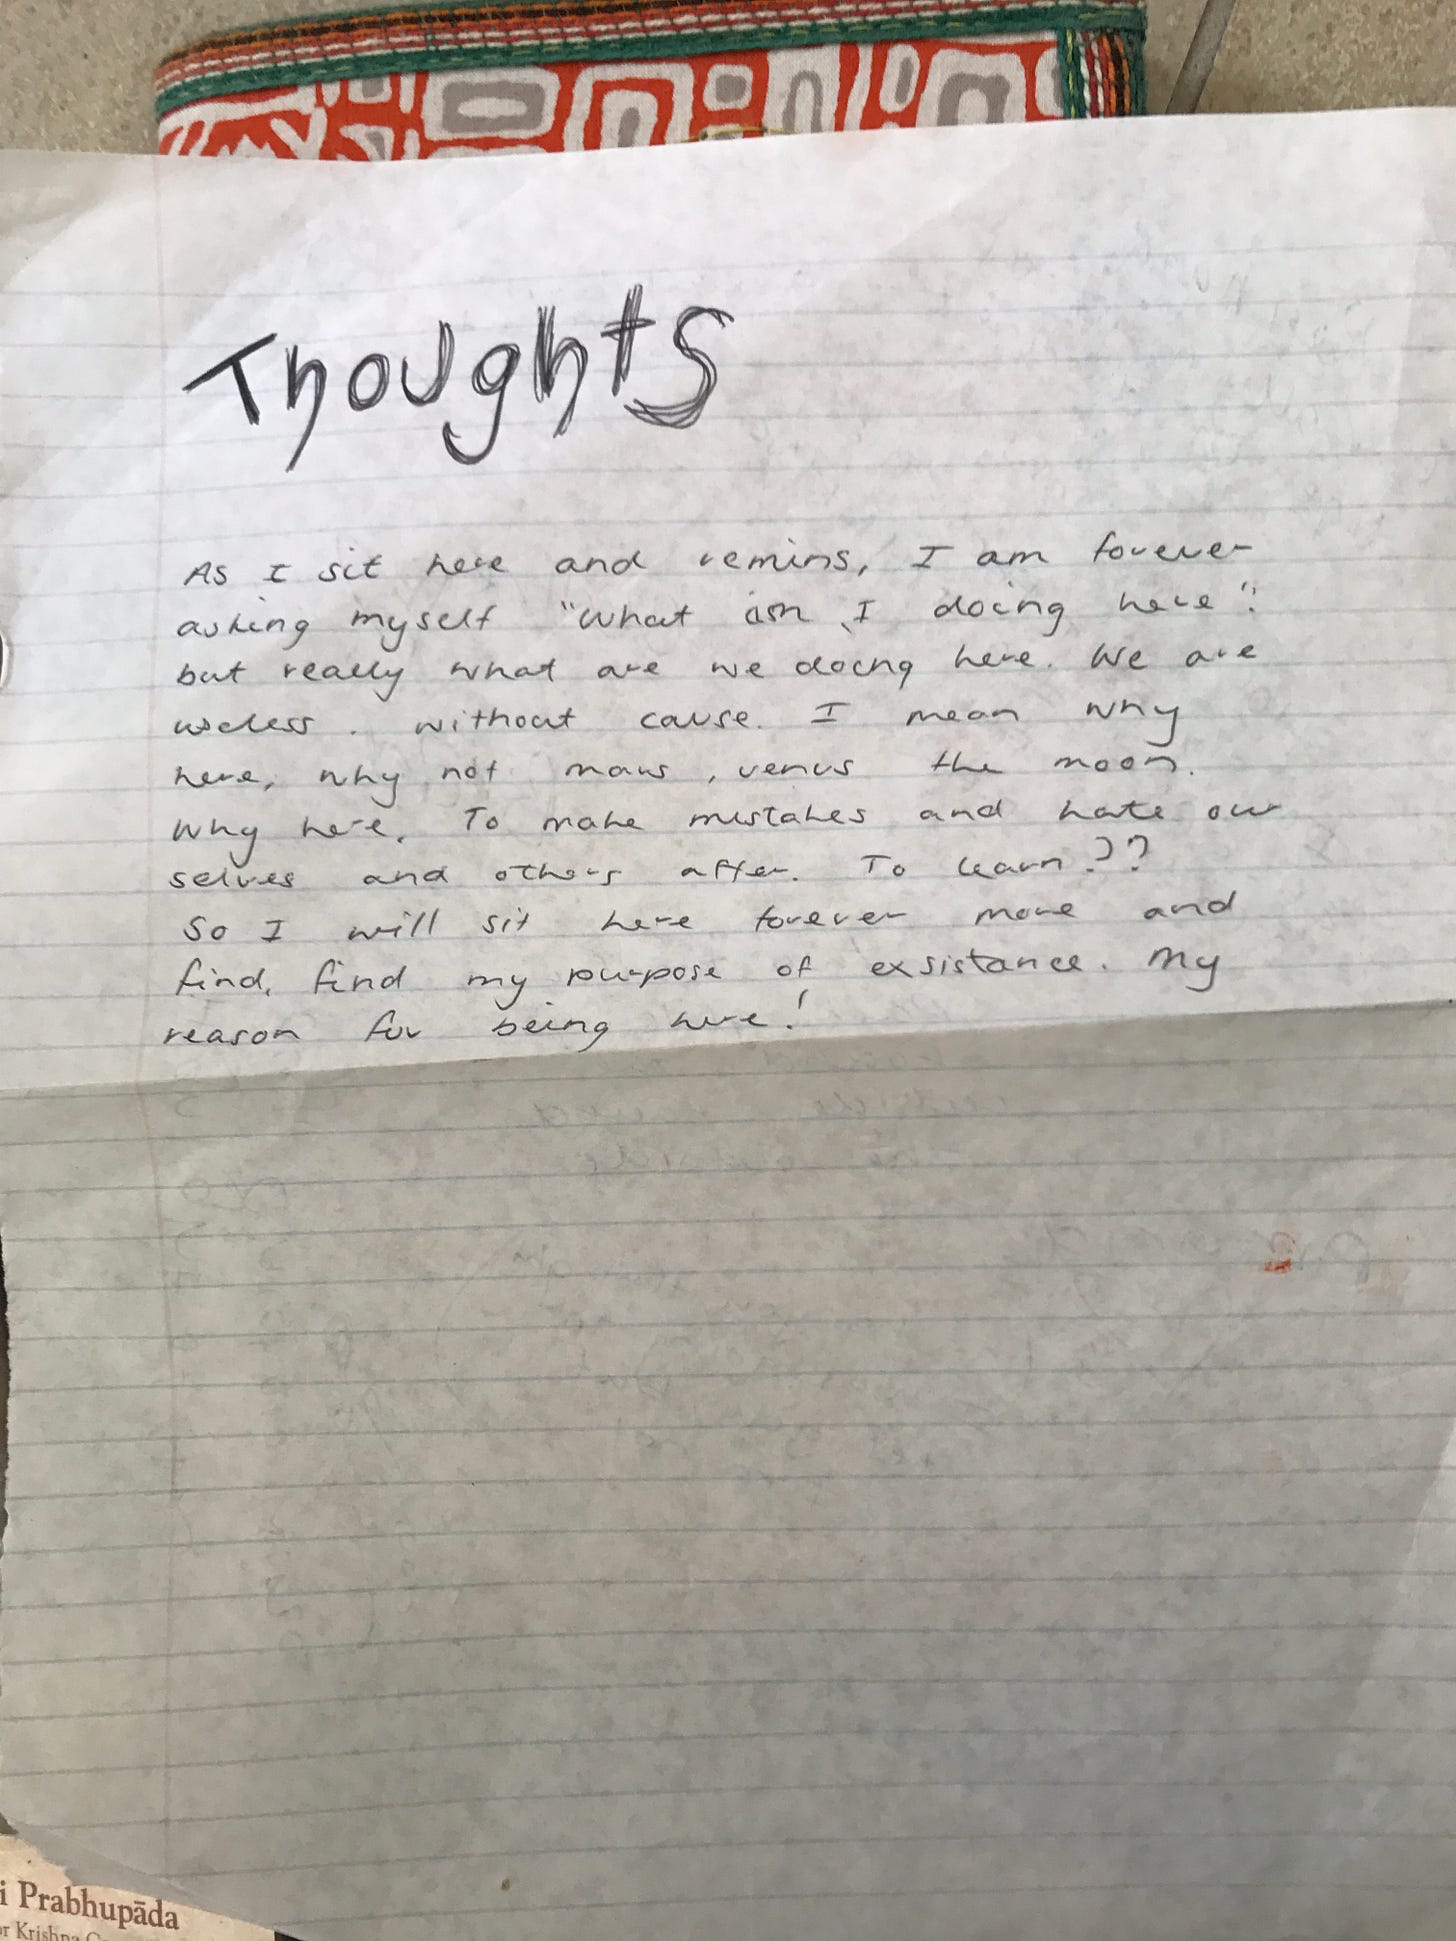 Thoughts
As I sit here and remins, I am forever
asking myself "What am I doing here".
but really what are we doing here. We are
useless. without cause. I mean why
here, why not mars, venus the moon.
Why here. To make mistakes and hate our
selves and others after. To learn??
So I will sit here forever more and
find, find my purpose of exsistance. My
reason for being here!
i Prabhupāda
or Krishna